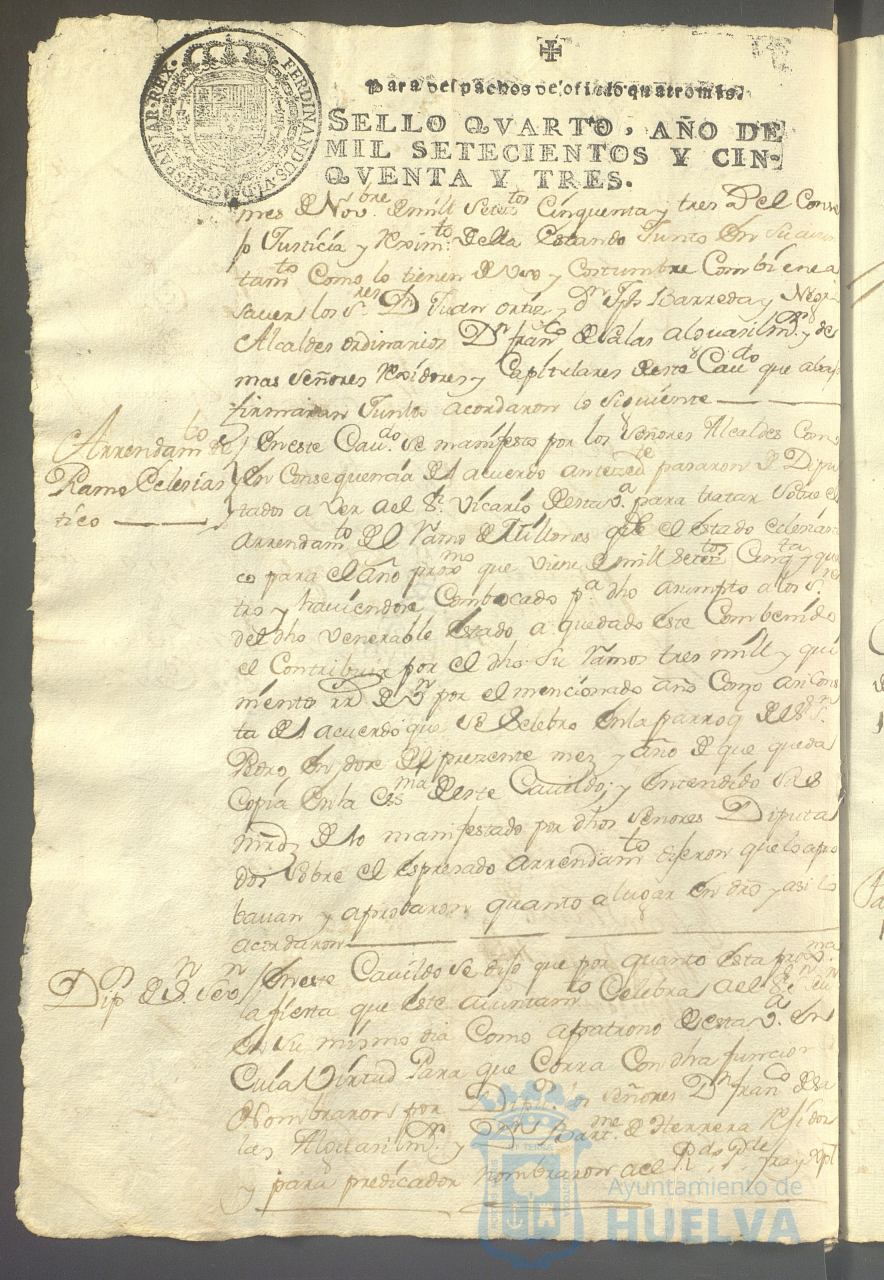 FERDINANDUS.VI.D.G.HISPANIAR.REX.
Para despachos de oficio quatro mrs.
SELLO QVARTO, AÑO DE
MIL SETECIENTOS Y CIN-
QVENTA Y TRES.
mes de Novbre. de mill setetos Cinquenta y tres a Del Conse
jo Justicia y Reximto. della Estando Junto En su aiun
tamto Como lo tienen de uso y Costumbre Combiene a
saver los sres. Dn Juan ortiz y dn Jph Barreda y Negr
Alcaldes ordinarios Dn franco de salas alguasil mr. y de
mas señores Rexidores y Capitulares deste Cavdo que abax
firmaran Juntos acordaron lo siguiente
Arrendamto de
Ramo Eclesias
tico
En este Cavdo. se manifesto por los señores Alcaldes Como
En Consequencia del acuerdo antezedte pasaron de Dipu
tados a ver ael sr. vicario desta va. para tratar sobre el
Arrendamto del Ramo de Millones qe el estado eclesiasti
co para el año proxmo que viene de mill setetos Cinqta y qua
tro y haviendose Combocado pa. dho asumpto a los sres
del dho venerable Estado a quedado este Combenido
el Contribuir por el dho su Ramo tres mill y qui
nientos rrs. de vn por el mencionado año Como asi Cons
ta del acuerdo que se Celebro En la parroq del sr. Sn
Pedro En doze del prezente mez y año de que queda
Copia En la Essma deste Cavildo; y Entendido sus
mrds de lo manifestado por dhos señores Diputa
dos sobre el espresado arrendamto dijeron que lo apro
bavan y aprobaron quanto a lugar En dro y asi lo
acordaron
Dipn de Sn. Sevn
En este Cavildo se dijo que por quanto Esta proxma.
la fiesta que este aiuntamto Celebra ael Sr. Sn Sevn
En su mismo dia Como a patrono desta va. En
Cuia Virtud Para que Corra Con dha funcion
Nombraron por Dipn. los señores Dn franco de sa
las Alguasil mr. y Dn Bartme de Herrera Rexidor
y para predicador nombraron ael Rdo Pe
Ayuntamiento de
HUELVA